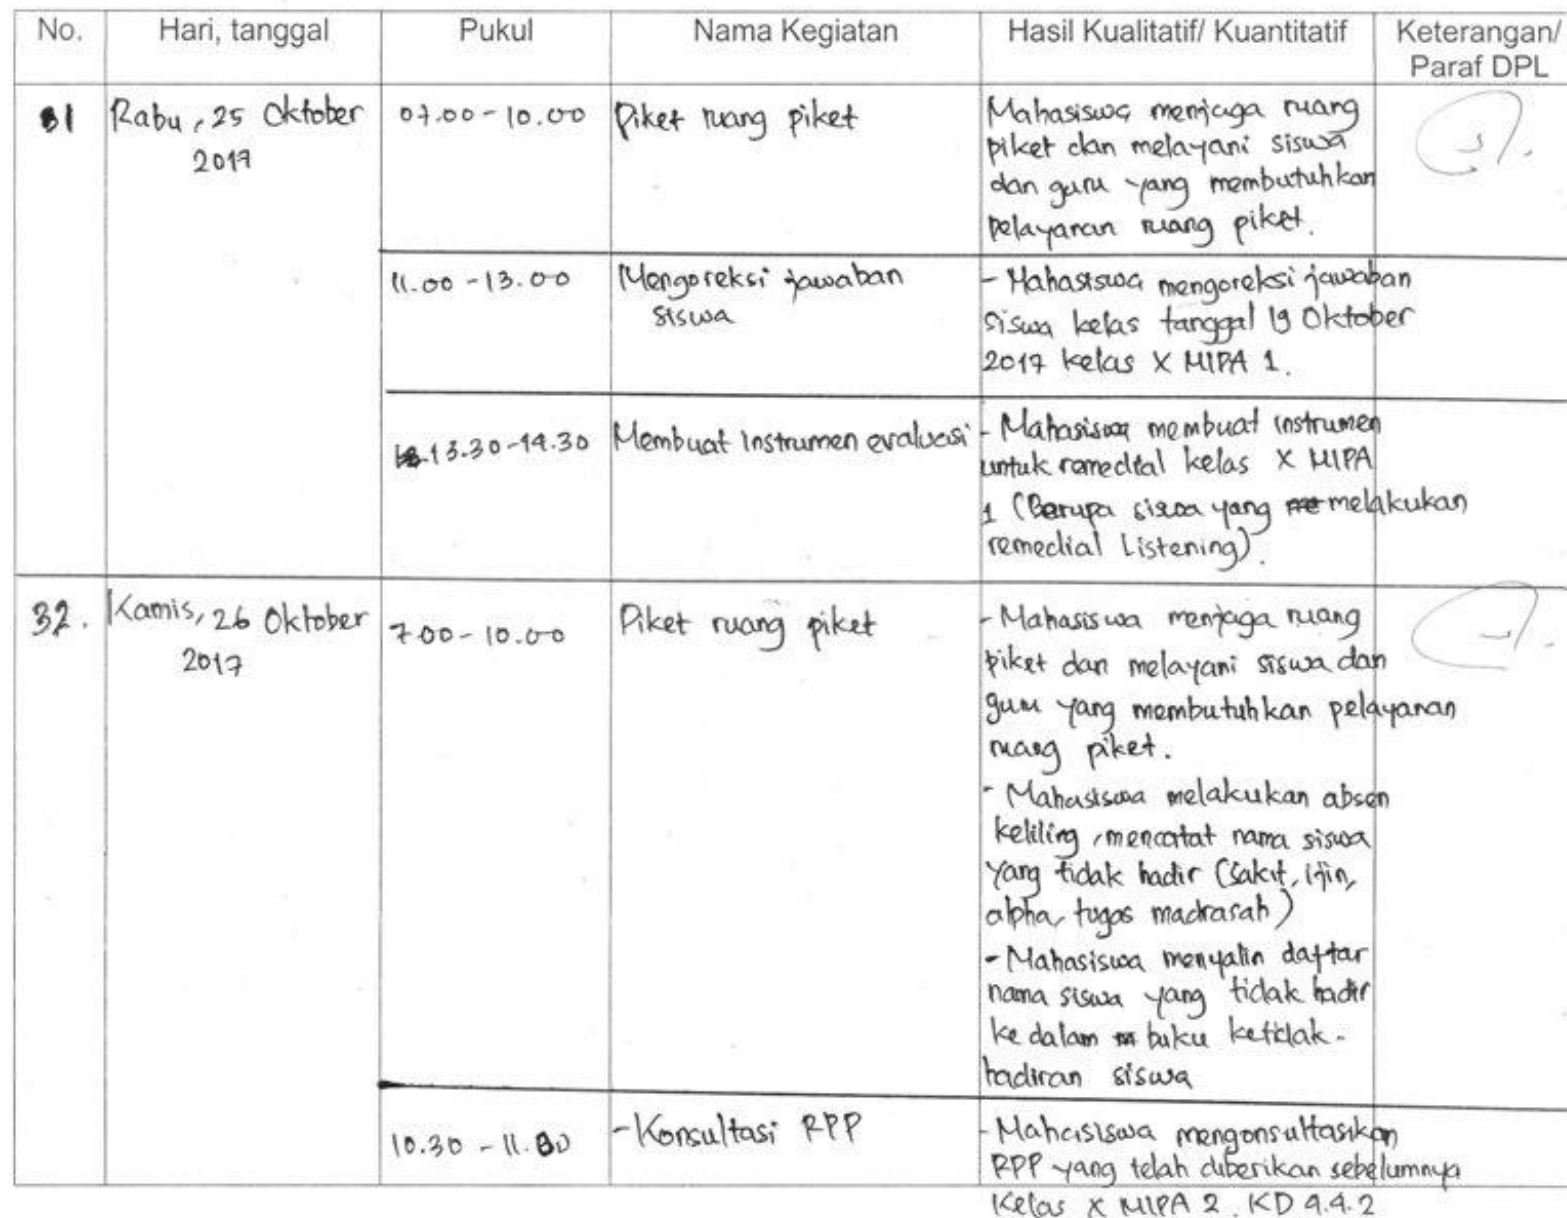 No. Hari, tanggal Pukul Nama Kegiatan Hasil Kualitatif/ Kuantitatif Keterangan/
Paraf DPL
31 Rabu, 25 Oktober 07.00 - 10.00 Piket ruang piket Mahasiswa menjaga ruang
2017 piket dan melayani siswa
dan guru yang membutuhkan
pelayanan ruang piket.
11.00 - 13.00 Mengoreksi jawaban - Mahasiswa mengoreksi jawaban
siswa siswa kelas tanggal 19 Oktober
2017 kelas X MIPA 1.
13.30-14.30 Membuat Instrumen evaluasi - Mahasiswa membuat instrumen
untuk remedial kelas X MIPA
1 (Berupa siswa yang melakukan
remedial Listening).
32. Kamis, 26 Oktober 7.00 - 10.00 Piket ruang piket - Mahasiswa menjaga ruang
2017 piket dan melayani siswa dan
guru yang membutuhkan pelayanan
ruang piket.
- Mahasiswa melakukan absen
keliling, mencatat nama siswa
yang tidak hadir (sakit, ijin,
alpha, tugas madrasah)
- Mahasiswa menyalin daftar
nama siswa yang tidak hadir
ke dalam buku ketidak-
hadiran siswa
10.30 - 11.00 - Konsultasi RPP - Mahasiswa mengonsultasikan
RPP yang telah diberikan sebelumnya
Kelas X MIPA 2. KD 4.4.2